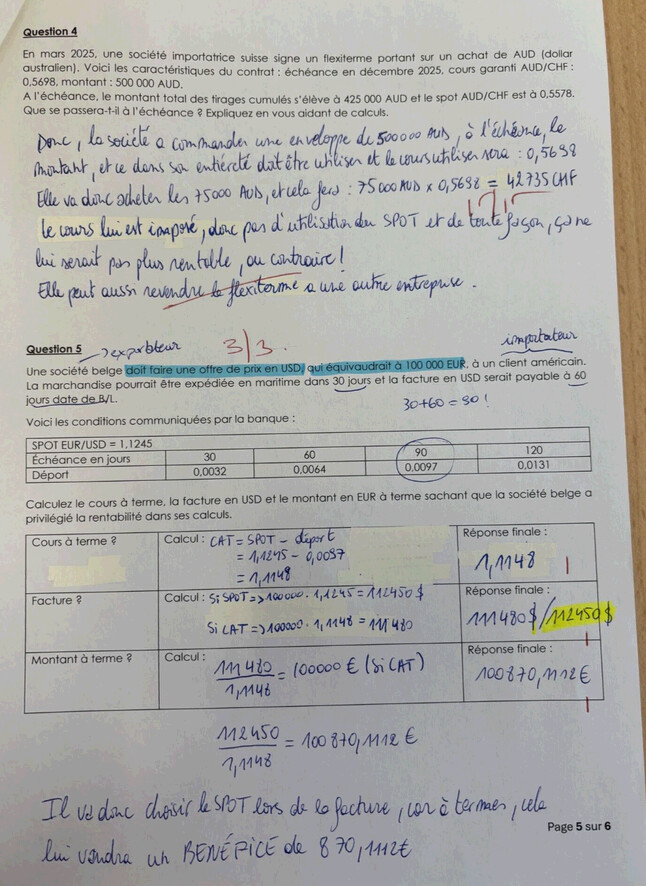 Question 4
En mars 2025, une société importatrice suisse signe un flexiterme portant sur un achat de AUD (dollar
australien). Voici les caractéristiques du contrat : échéance en décembre 2025, cours garanti AUD/CHF :
0,5698, montant : 500 000 AUD.
A l'échéance, le montant total des tirages cumulés s'élève à 425 000 AUD et le spot AUD/CHF est à 0,5578.
Que se passera-t-il à l'échéance ? Expliquez en vous aidant de calculs.
Donc, la société a commander une enveloppe de 500000 AUD, à l'échéance, le
montant, et ce dans son entièreté doit être utiliser et le cours utiliser sera : 0,5698
Elle va donc acheter les 75000 AUD, et cela fera : 75000 AUD x 0,5698 = 42735 CHF
le cours lui est imposé, donc pas d'utilisation du SPOT et de toute façon, ça ne
lui serait pas plus rentable, au contraire !
Elle peut aussi revendre le flexiterme a une autre entreprise.
Question 5 → exportateur 3/3. importateur
Une société belge doit faire une offre de prix en USD, qui équivaudrait à 100 000 EUR, à un client américain.
La marchandise pourrait être expédiée en maritime dans 30 jours et la facture en USD serait payable à 60
jours date de B/L.
30+60 = 90 !
Voici les conditions communiquées par la banque :
SPOT EUR/USD = 1,1245
Échéance en jours 30 60 90 120
Déport 0,0032 0,0064 0,0097 0,0131
Calculez le cours à terme, la facture en USD et le montant en EUR à terme sachant que la société belge a
privilégié la rentabilité dans ses calculs.
Cours à terme ? Calcul : CAT = SPOT - déport Réponse finale :
= 1,1245 - 0,0097
= 1,1148 1,1148
Facture ? Calcul : Si SPOT => 100000 . 1,1245 = 112450 $ Réponse finale :
Si CAT => 100000 . 1,1148 = 111480 111480 $ / 112450 $
Montant à terme ? Calcul : 111480 / 1,1148 = 100000 € (Si CAT) Réponse finale :
100870,1112 €
112450 / 1,1148 = 100870,1112 €
Il va donc choisir le SPOT lors de la facture, car à termes, cela
lui vaudra un BENÉFICE de 870,1112€
Page 5 sur 6